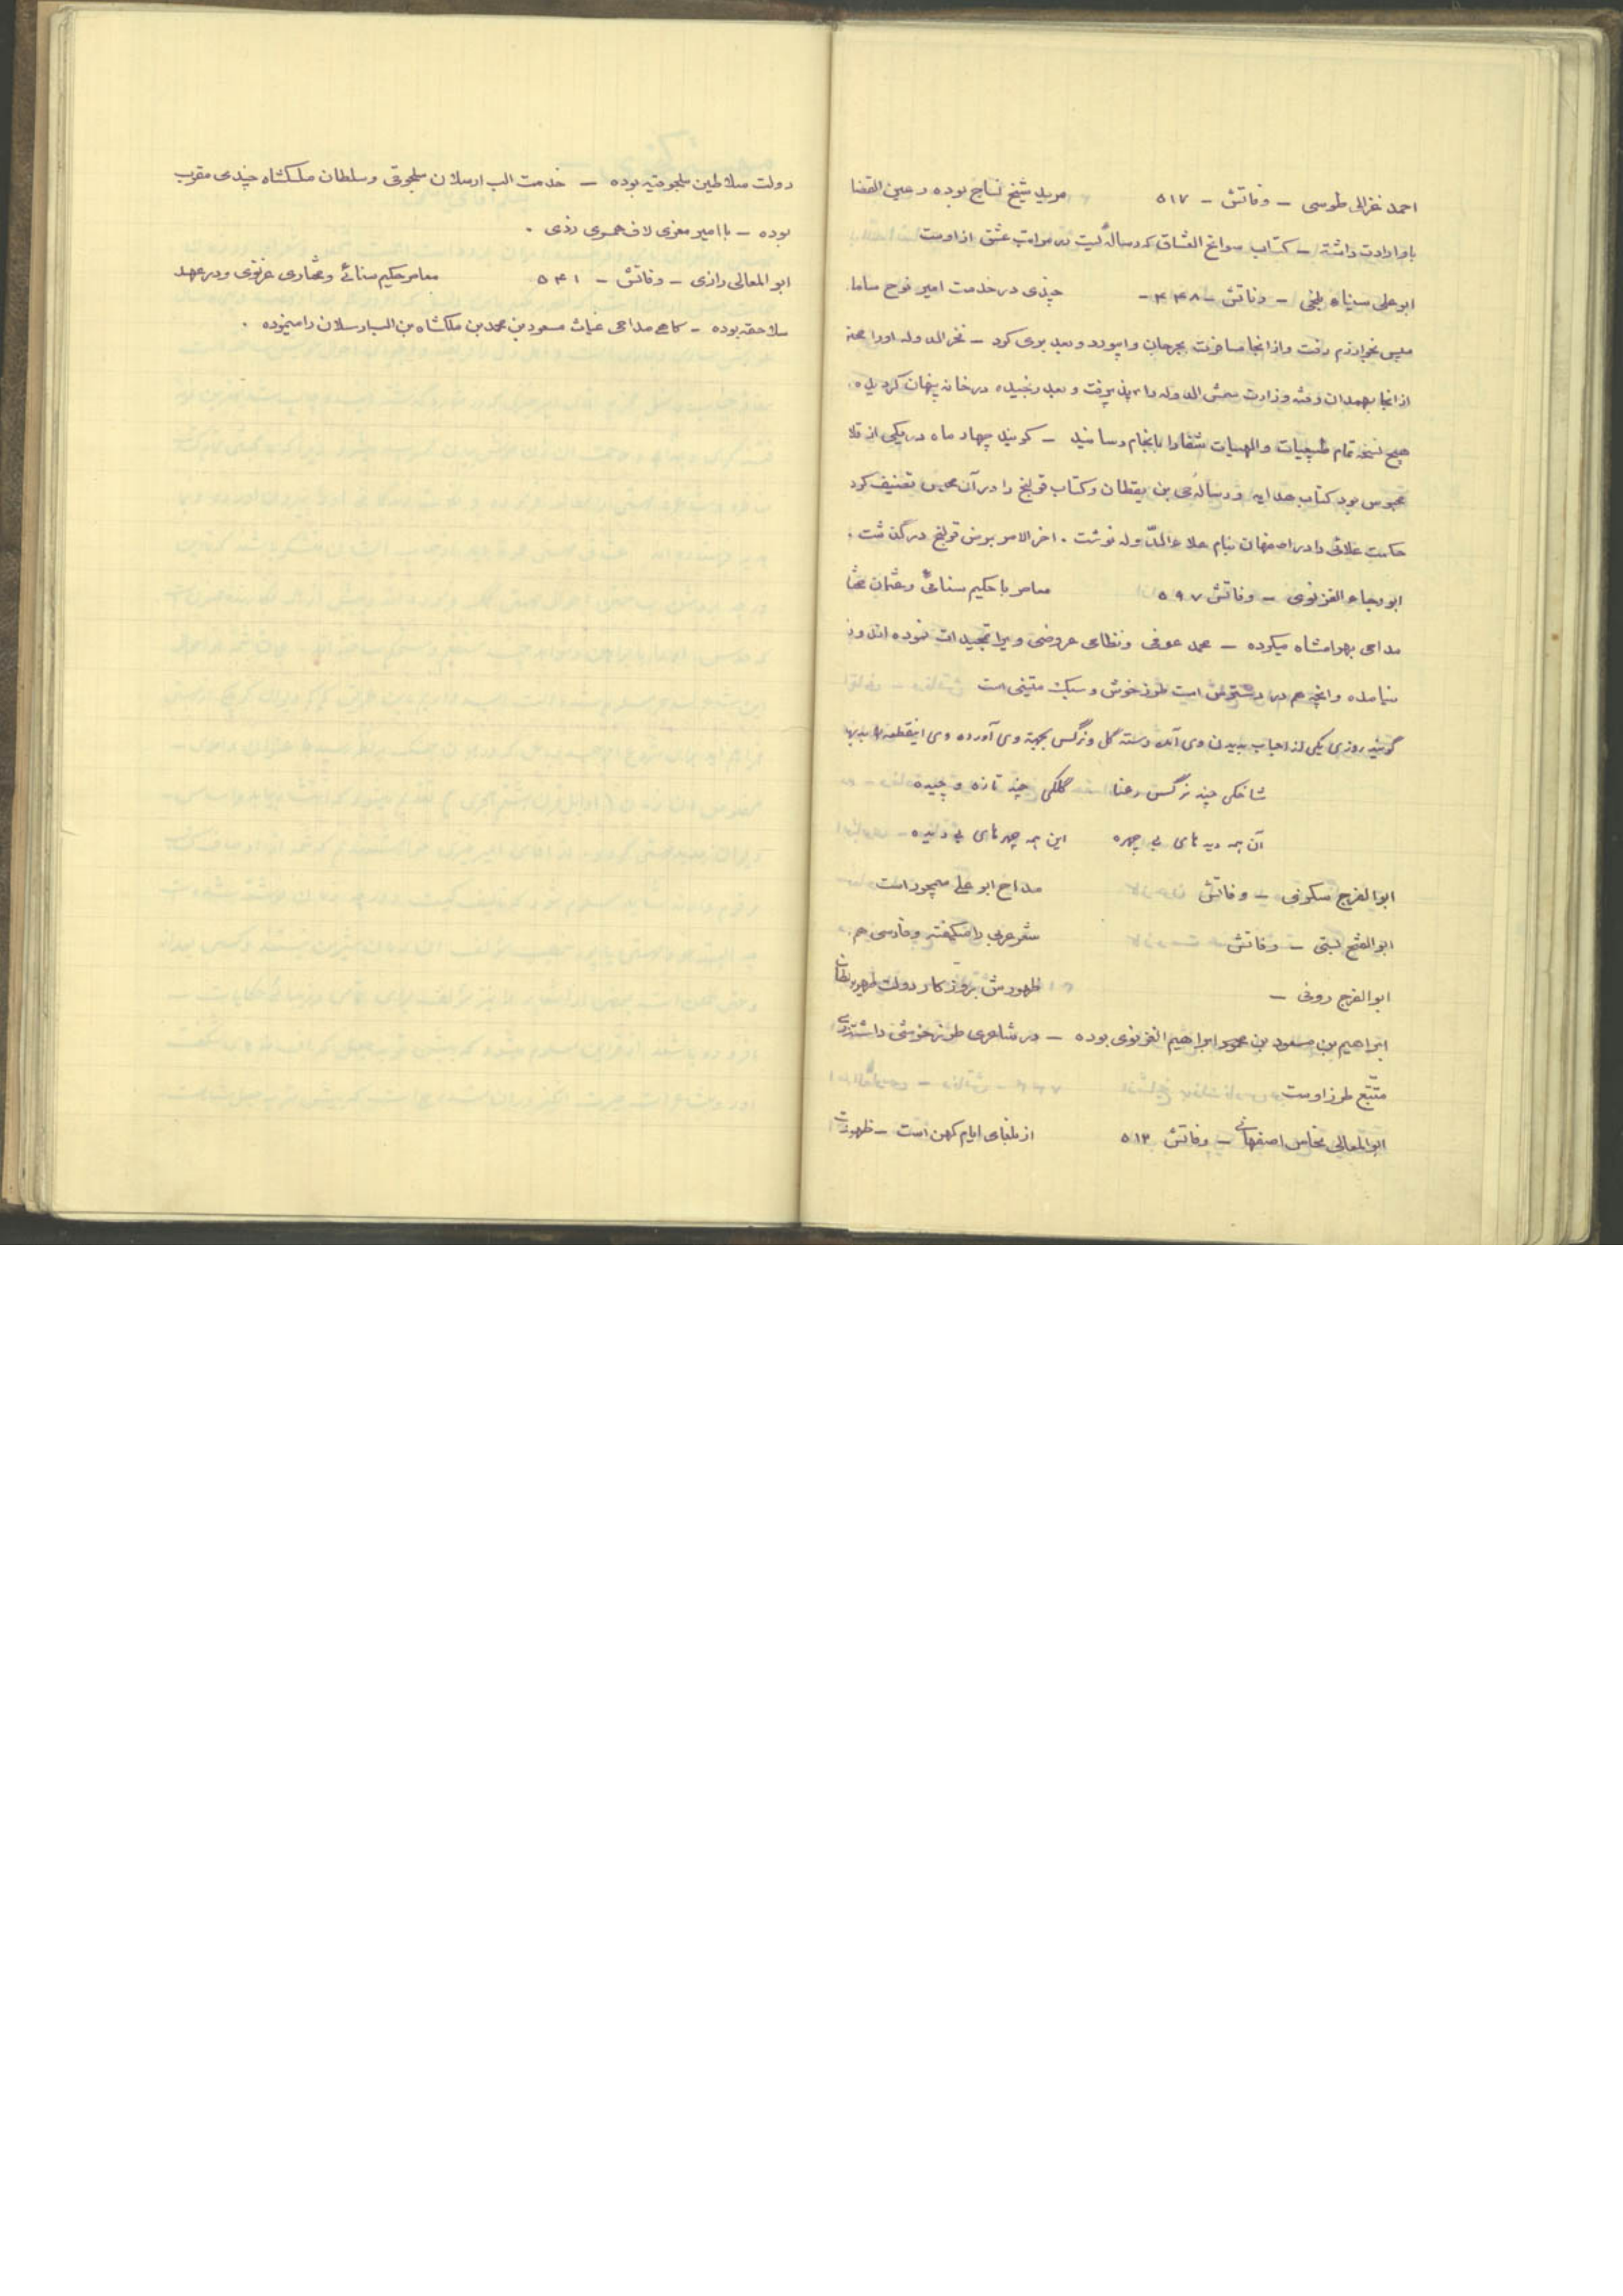 احمد غزالی طوسی – وفاتش – ۵۱۷ مرید شیخ نساج بوده و عین القضا
باو ارادت داشته – کتاب سوانح العشاق که رساله‌ایست در مراتب عشق از اوست
ابوعلی سیناء بلخی – وفاتش – ۴۴۸ – چندی در خدمت امیر نوح ساما
سپس بخوارزم رفت و از انجا مسافرت بجرجان و ابیورد و بعد بری کرد – فخر الدوله اورا
از انجا بهمدان رفته وزارت شمس الدوله را بپذیرفت و بعد رنجیده در خانه پنهان گردیده
هیچ نسخه تمام طبیعیات و الهیات شفا را بانجام رسانید – گویند چهار ماه در یکی از قلا
محبوس بود کتاب هدایه و رساله حی بن یقظان و کتاب قولنج را در آن محبس تصنیف کرد
حکمت علائی را در اصفهان بنام علاء الدوله نوشت . اخر الامر بمرض قولنج درگذشت .
ابورجاء الغزنوی – وفاتش ۵۹۷ معاصر با حکیم سنائی و عثمان مختا
مداحی بهرامشاه میکرده – محمد عوفی و نظامی عروضی ویرا تمجیدات نموده اند
نیامده و انچه هم در دسترس است طرز خوش و سبک متینی است
گویند روزی یکی از احباب بدیدن وی آمد دسته گل و نرگس بجهة وی آورده وی اینقطعه را بدیها
شاخکی چند نرگس رعنا گلکی چند تازه و چیده
آن همه دیده‌های بی چهره این همه چهره‌های بی دیده
ابوالفرج سکزی – وفاتش مداح ابو علی سیمجور است
ابوالفتح بستی – وفاتش شعر عربی را میگفته و فارسی هم .
ابوالفرج رونی – ظهورش بروزگار دولت ظهیر سلطان
ابراهیم بن مسعود بن محمود ابراهیم الغزنوی بوده – در شاعری طرز خوشی داشته
متتبع طرز اوست
ابوالمعالی نحاس اصفهانی – وفاتش ۵۱۲ از بلغای ایام کهن است – ظهورش
دولت سلاطین سلجوقیه بوده – خدمت الب ارسلان سلجوقی و سلطان ملکشاه چندی مقرب
بوده – با امیر معزی لاف همسری زدی .
ابو المعالی رازی – وفاتش – ۵۴۱ معاصر حکیم سنائی و مختاری غزنوی و در عهد
سلاجقه بوده – گاهی مداحی غیاث مسعود بن محمد بن ملکشاه بن الب ارسلان را مینموده .